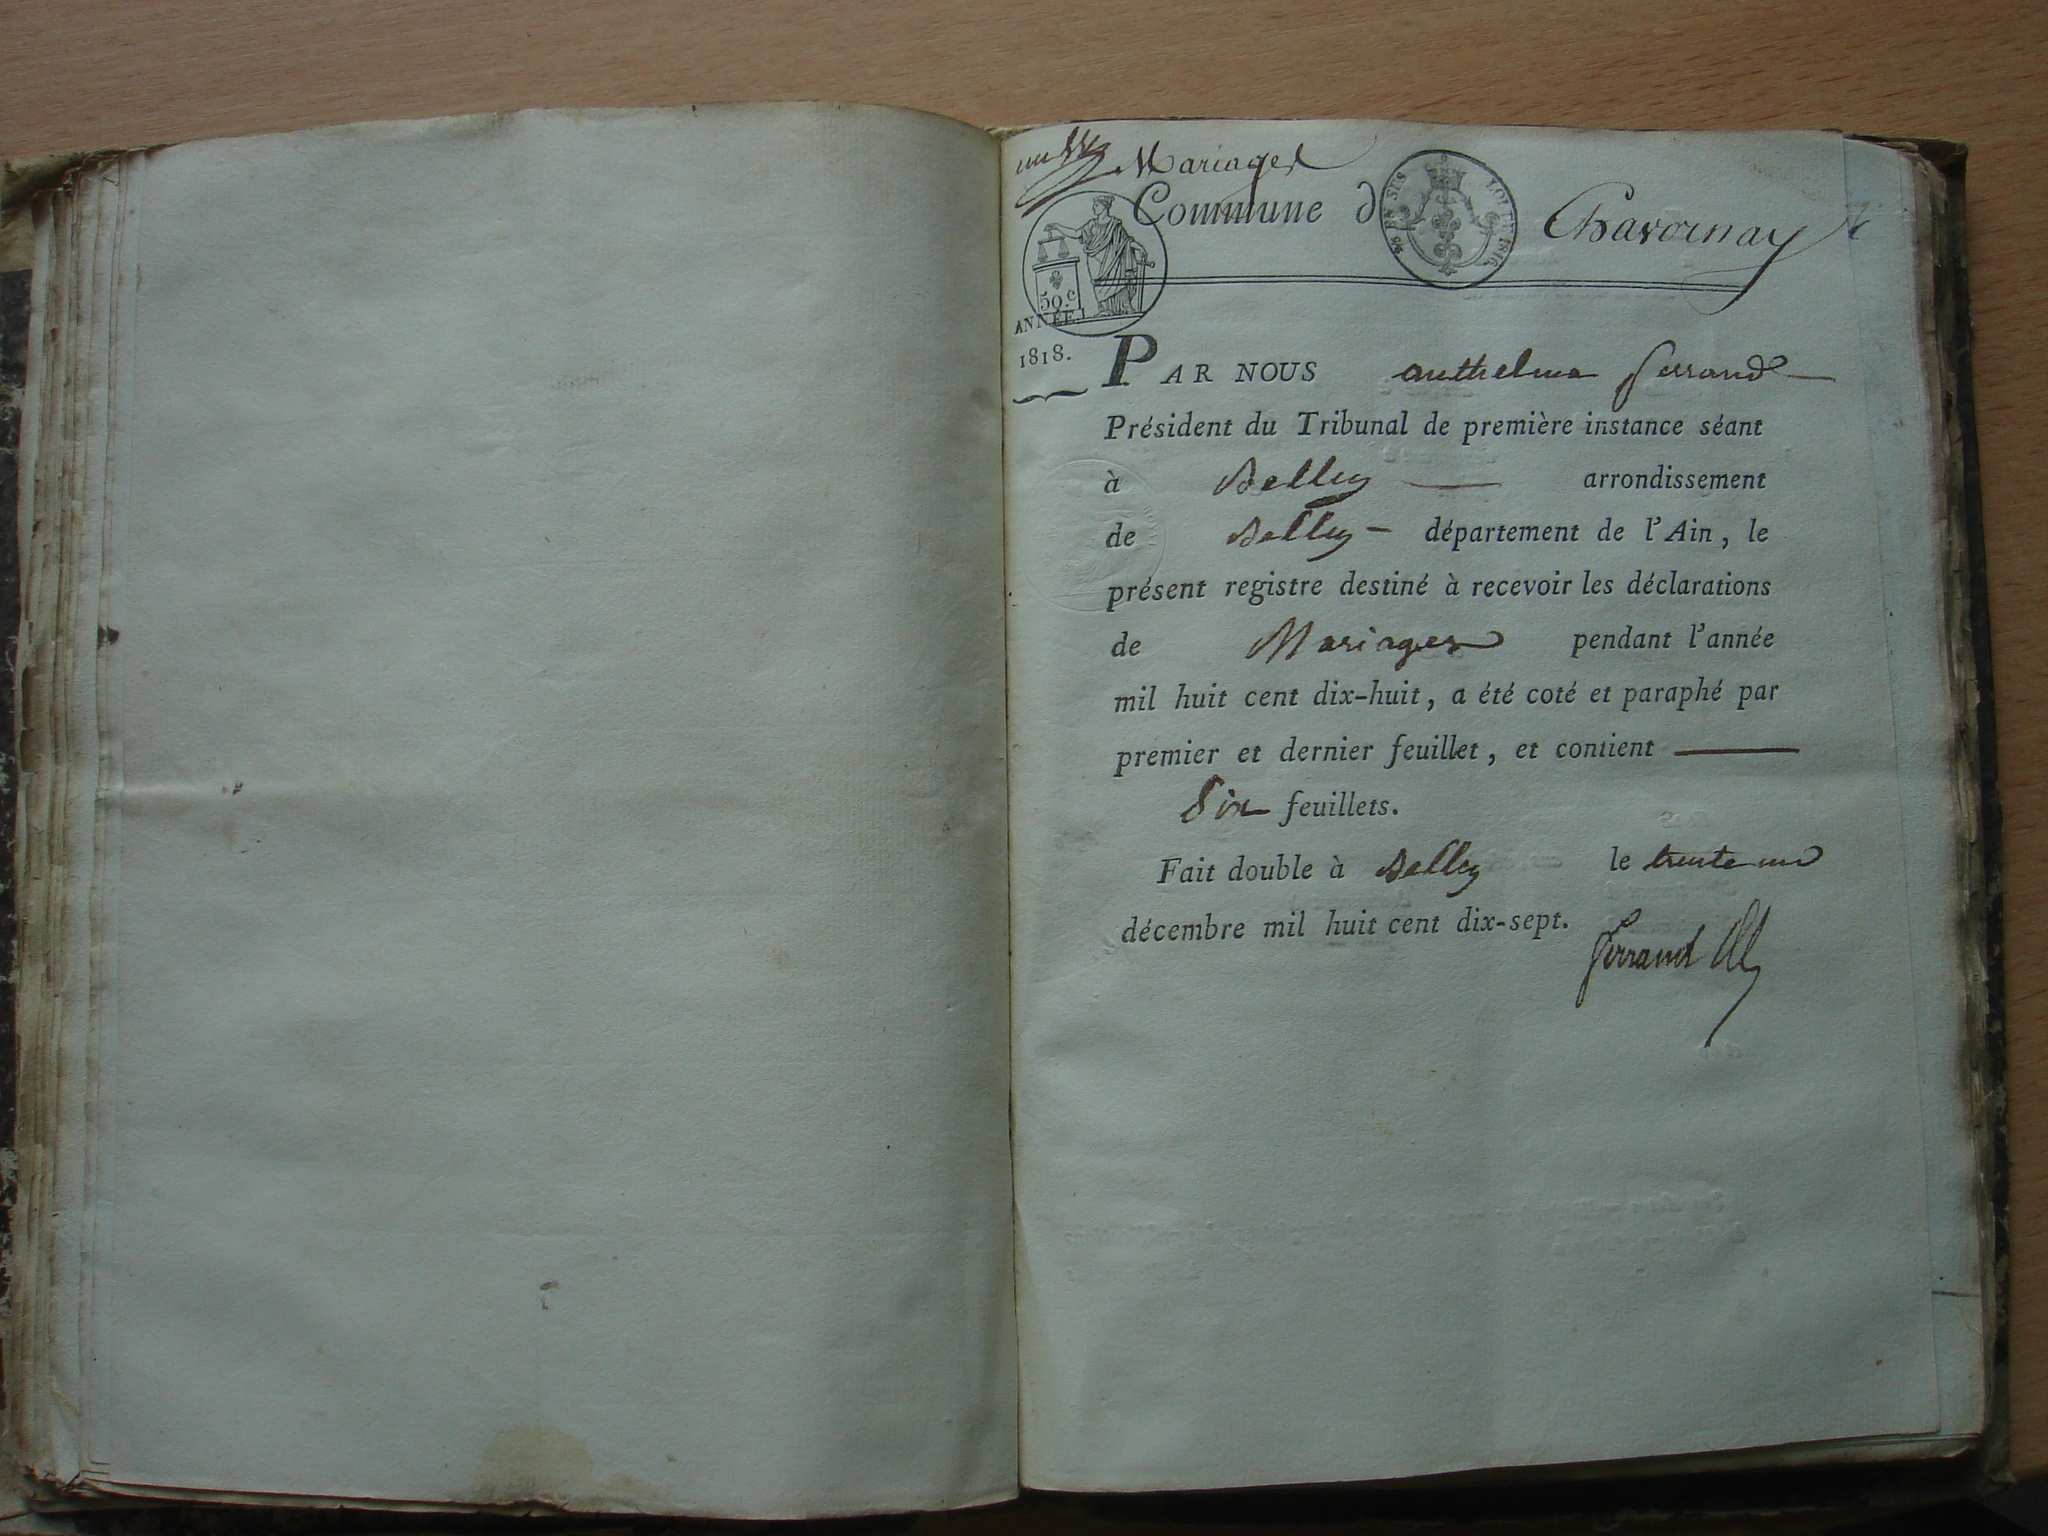 Mariages
Commune d Chavornay
50.c
ANNÉE
1818.
PAR NOUS anthelme ferrand
Président du Tribunal de première instance séant
à Belley arrondissement
de Belley département de l'Ain, le
présent registre destiné à recevoir les déclarations
de Mariages pendant l'année
mil huit cent dix-huit, a été coté et paraphé par
premier et dernier feuillet, et contient
Six feuillets.
Fait double à Belley le trente un
décembre mil huit cent dix-sept.
ferrand